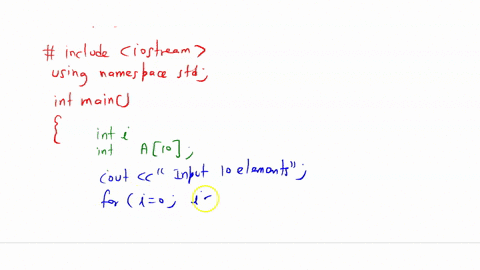 # include <iostream>
using namespace std;
int main()
{
int i
int A[10];
cout << "Input 10 elements";
for (i=0; i<